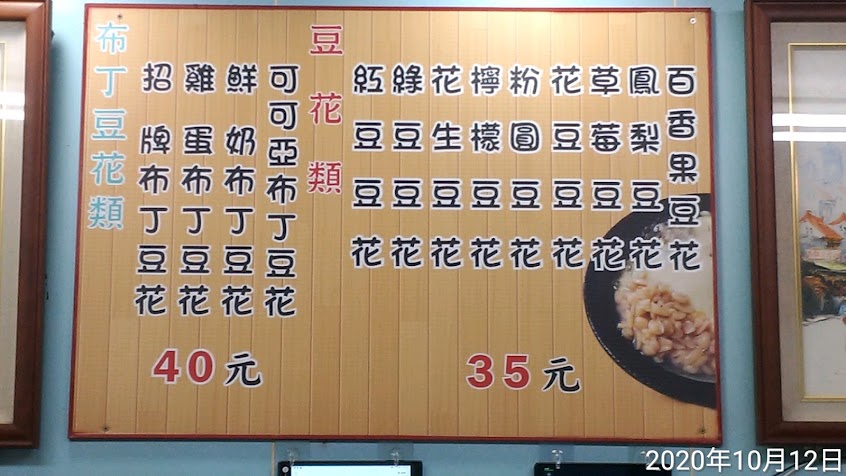 布丁豆花類
招牌布丁豆花
雞蛋布丁豆花
鮮奶布丁豆花
可可亞布丁豆花
40元
豆花類
紅豆豆花
綠豆豆花
花生豆花
檸檬豆花
粉圓豆花
花豆豆花
草莓豆花
鳳梨豆花
百香果豆花
35元
2020年10月12日